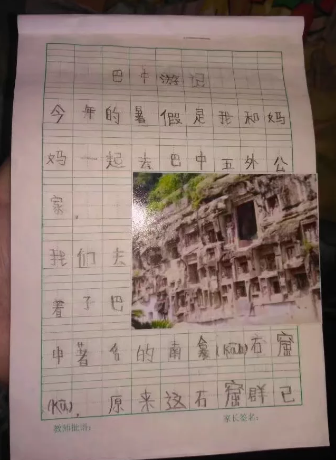 巴中游记
今年的暑假是我和妈
妈一起去巴中五外公
家。
我们去
看了巴
中著名的南龛(Kan)石窟
(Ku)。原来这石窟群已
教师批语: 家长签名: